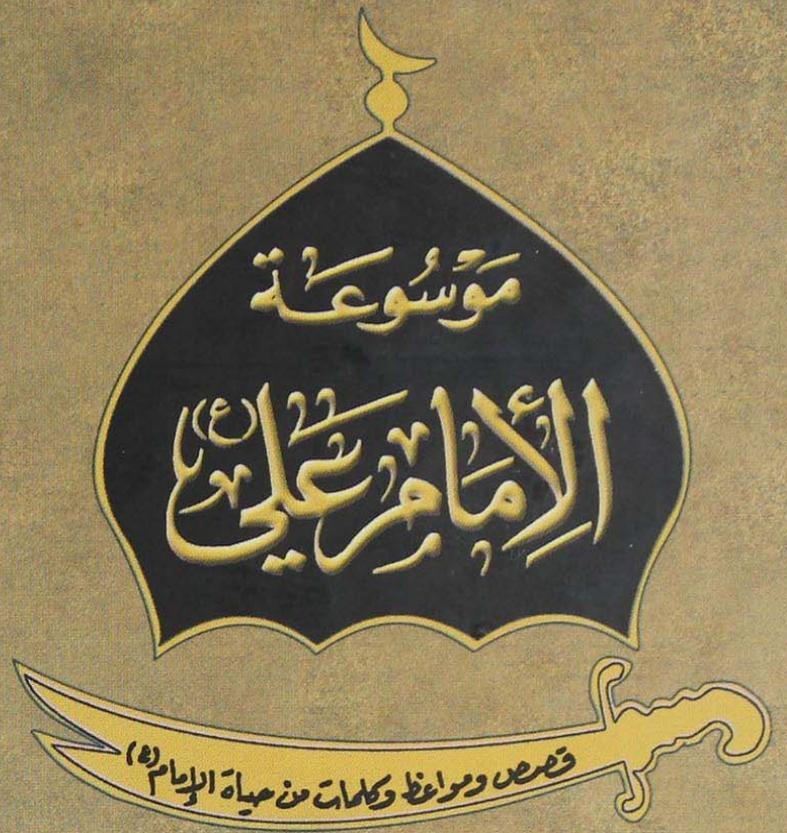 مَوْسُوعَة
الإِمَام عَلي (ع)
قصص ومواعظ وكلمات من حياة الإمام (ع)